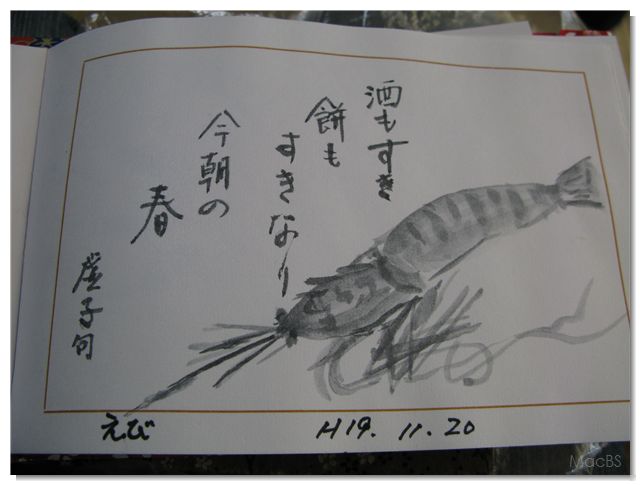 酒もすき
餅も
すきなり
今朝の
春
虚子句
えび
H19. 11. 20
MacBS